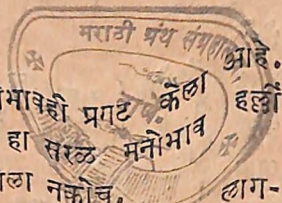 मराठी ग्रंथ संग्रहालय
आहे.
भावही प्रगट केला हल्लीं
हा सरळ मनोभाव
ला नकोच. लाग-